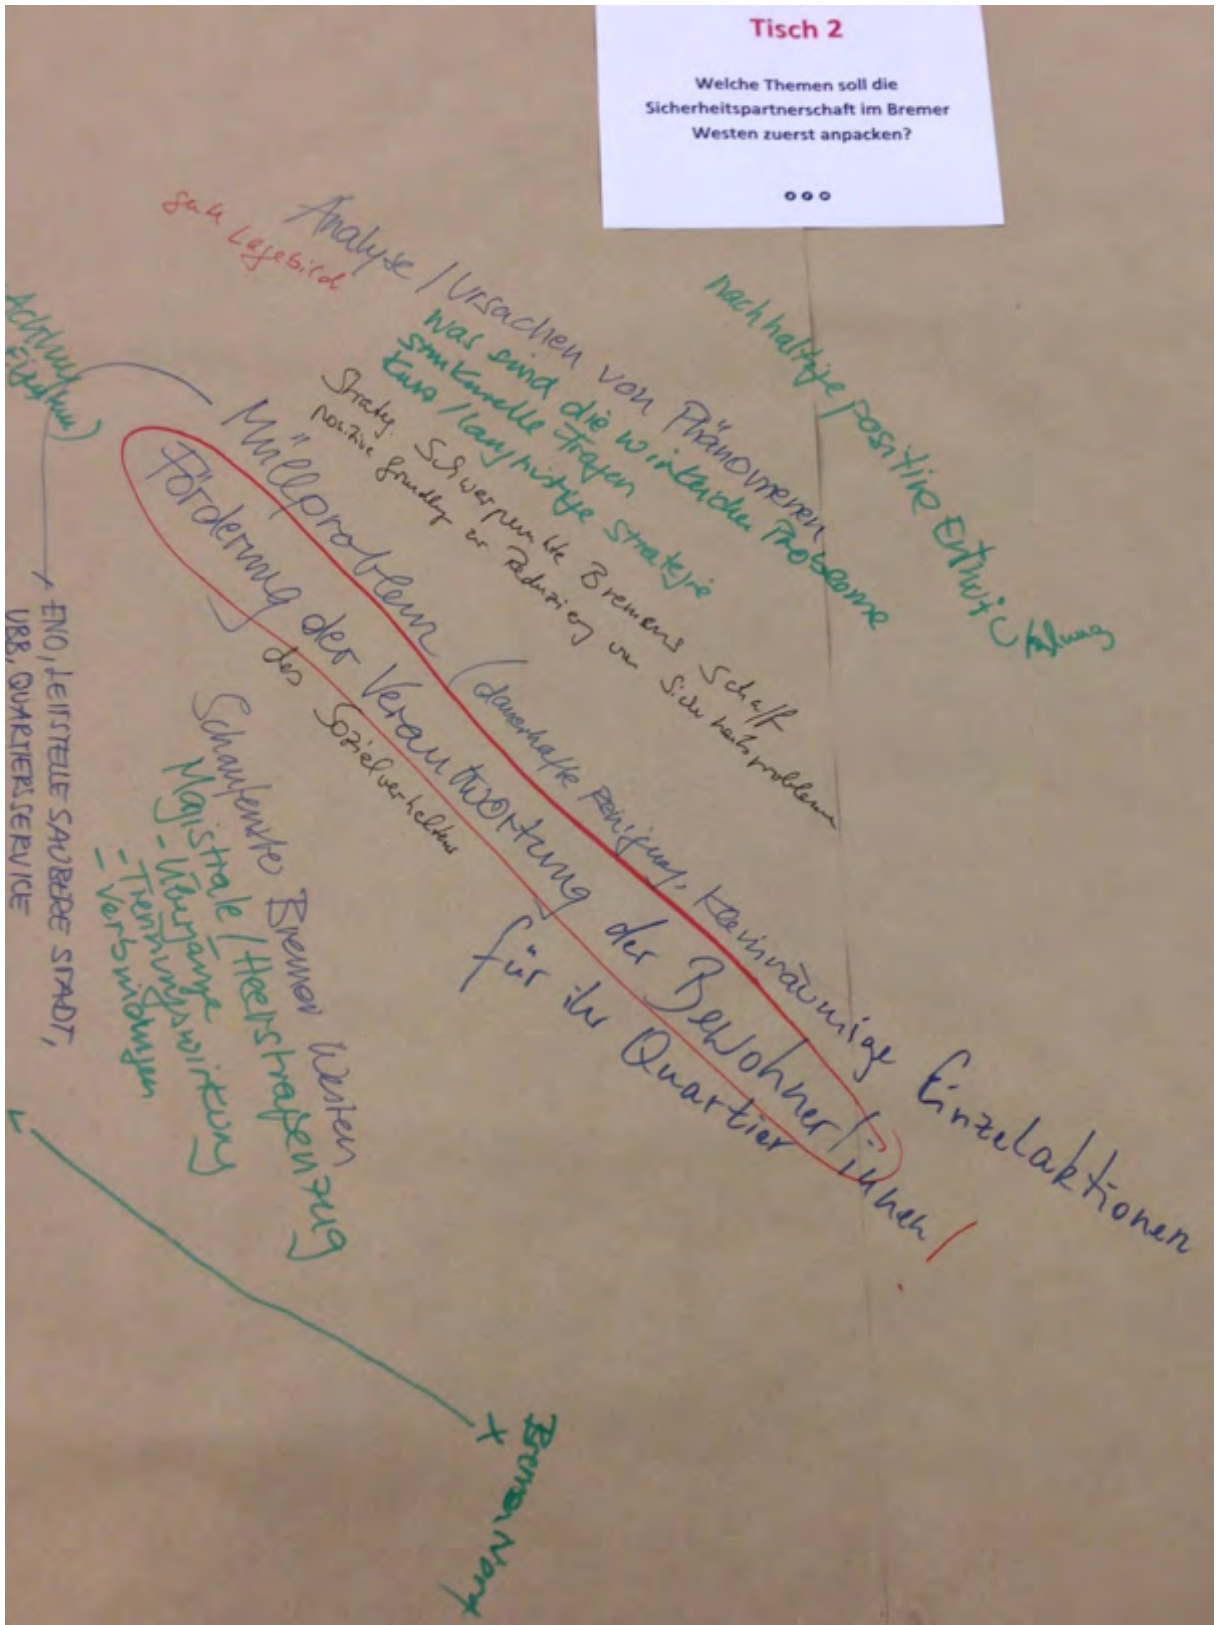 Tisch 2
Welche Themen soll die
Sicherheitspartnerschaft im Bremer
Westen zuerst anpacken?
Lagebild
Analyse / Ursachen von Phänomenen
was sind die wirklichen Probleme
strukturelle Fragen
kurz / langfristige Strategie
nachhaltige positive Entwicklung
Strateg. Schwerpunkte Bremens Schaff
positive zur Reduzierg von Sicherheitsproblemen
Achtung
Eigentum)
Müllproblem (dauerhafte Reinigung, kleinräumige Einzelaktionen
Förderung der Verantwortung der Bewohner/innen
für ihr Quartier !
des Sozialverhaltens
ENO, LEITSTELLE SAUBERE STADT,
UBB, QUARTIERSERVICE
Schaufenster Bremer Westen
Magistrale / Heerstraßenzug
- Übergänge
- Trennungswirkung
- Verbindungen
Bremen Nord